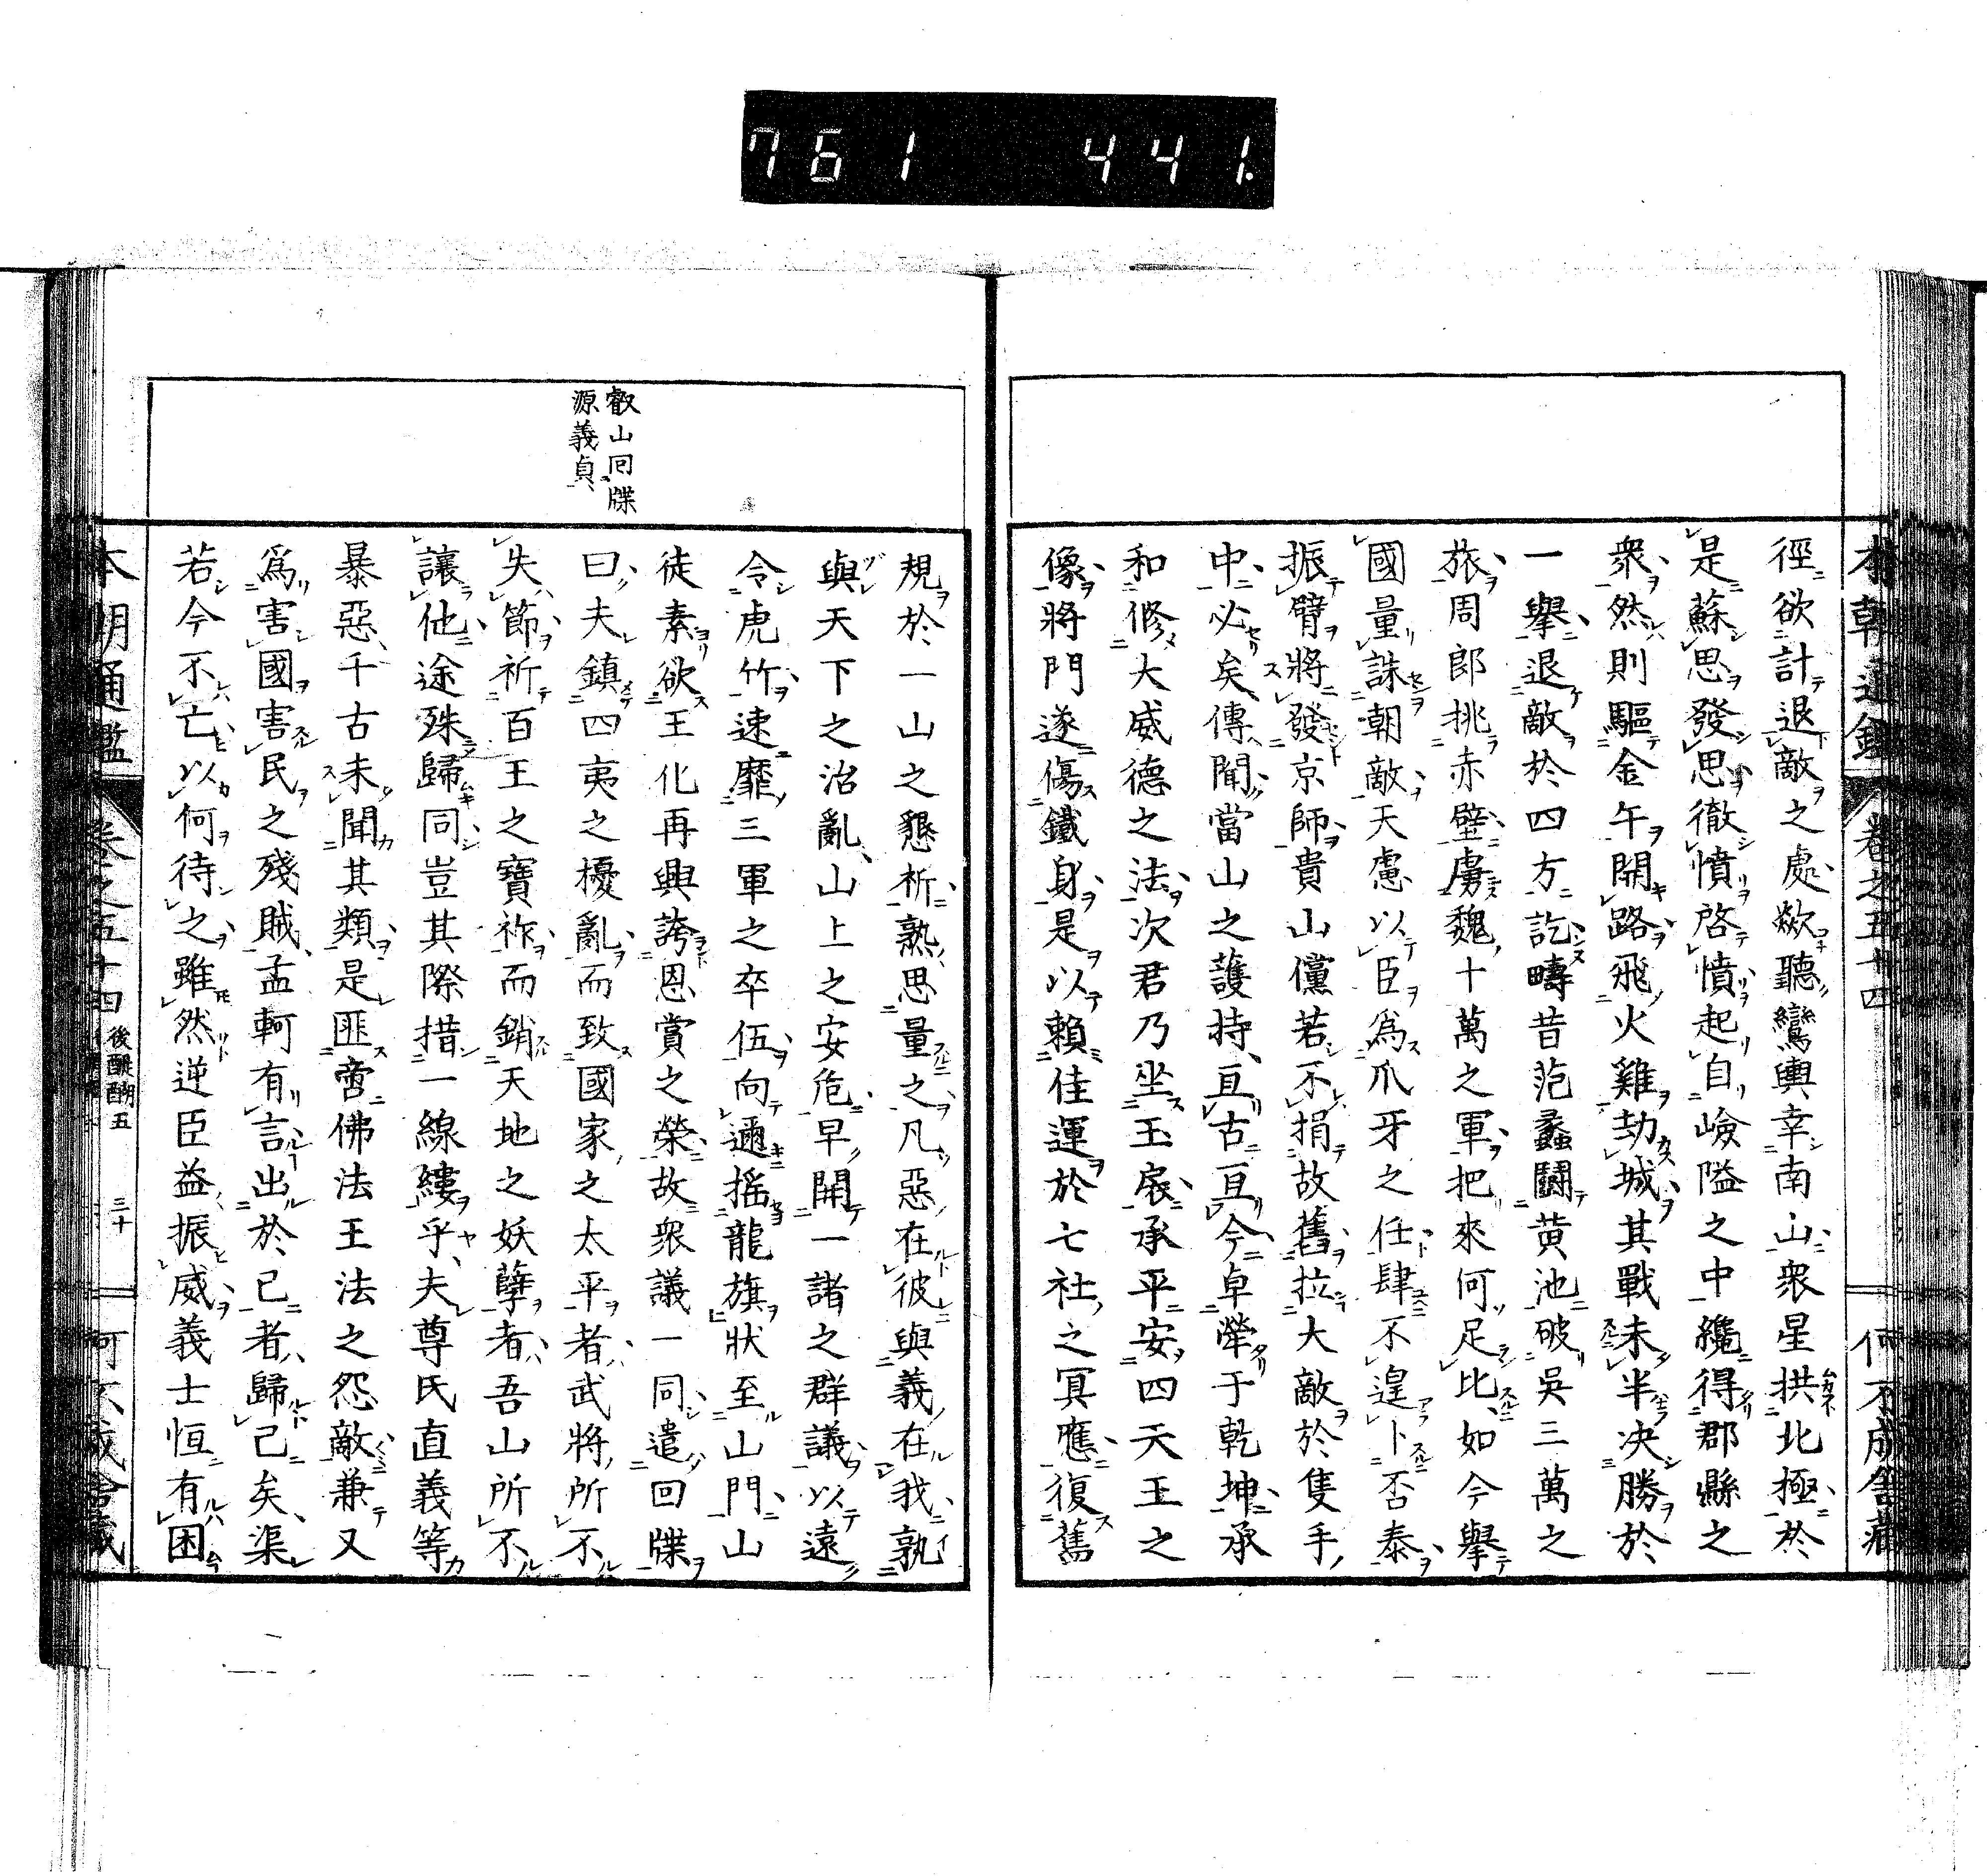 761 441.
本朝通鑑 卷之五十四 何不成舍藏
徑欲計退敵之處欻聽鸞輿幸南山衆星拱北極於
是蘇思發思徹憤啓憤起自嶮隘之中纔得郡縣之
衆然則驅金午開路飛火雞劫城其戰未半決勝於
一擧退敵於四方訖疇昔范蠡鬪黄池破吳三萬之
旅周郎挑赤壁虜魏十萬之軍把來何足比如今擧
國量誅朝敵天慮以臣爲爪牙之任肆不遑卜否泰
振臂將發京師貴山儻若不捐故舊拉大敵於隻手
中必矣傳聞當山之護持亘古亘今卓犖于乾坤承
和修大威德之法次君乃坐玉扆承平安四天王之
像將門遂傷鐵身是以賴佳運於七社之冥應復舊
規於一山之懇祈熟思量之凡惡在彼與義在我孰
與天下之治亂山上之安危早開一諸之群議以遠
令虎竹速靡三軍之卒伍向遁搖龍旗狀至山門山
徒素欲王化再興誇恩賞之榮故衆議一同遣回牒
曰夫鎮四夷之擾亂而致國家之太平者武將所不
失節祈百王之寶祚而銷天地之妖孽者吾山所不
讓他途殊歸同豈其際措一線縷乎夫尊氏直義等
暴惡千古未聞其類是匪啻佛法王法之怨敵兼又
爲害國害民之殘賊孟軻有言出於己者歸己矣渠
若今不亡以何待之雖然逆臣益振威義士恒有困
叡山囘牒
源義貞
本朝通鑑 卷之五十四 後醍醐五 三十 何不成舍藏